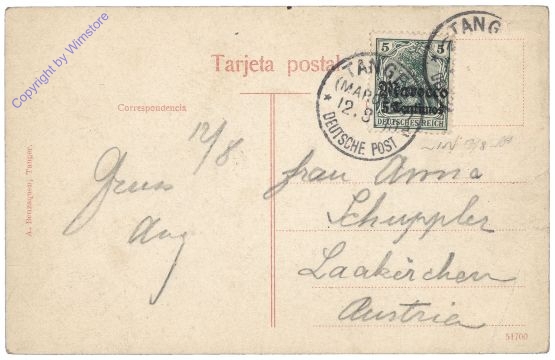 Copyright by Wimstore
Tarjeta postal
Correspondencia
A. Benzaquen, Tanger.
12/8
Gruss
Aug
5 5
Marocco
5 Centimos
DEUTSCHES REICH
TANGER
(MAROCCO)
12. 8
* DEUTSCHE POST
TANG
Frau Anna
Schuppler
Laakirchen
Austria
51700